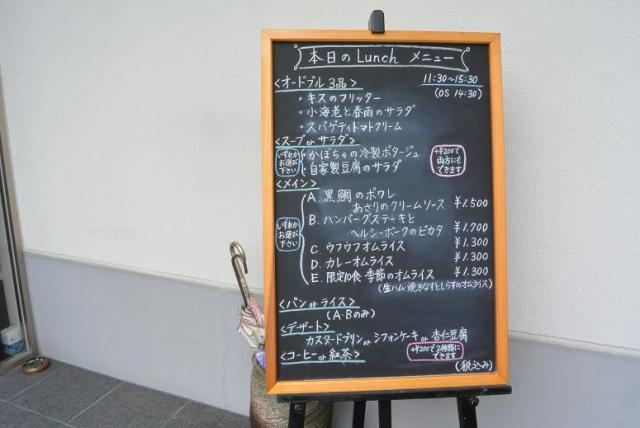 本日のLunch メニュー
<オードブル 3品>
11:30~15:30
(OS 14:30)
・キスのフリッター
・小海老と春雨のサラダ
・スパゲティトマトクリーム
<スープorサラダ>
いずれか
お選び
下さい
・かぼちゃの冷製ポタージュ
・自家製豆腐のサラダ
+¥200で
両方にも
できます
<メイン>
いずれか
お選び
下さい
A. 黒鯛のポワレ
あさりのクリームソース ¥1.500
B. ハンバーグステーキと
ヘルシーポークのピカタ ¥1.700
C. ウフウフオムライス ¥1.300
D. カレーオムライス ¥1.300
E. 限定10食 季節のオムライス ¥1.300
(生ハム・焼きなすとしらすのオムライス)
<パンorライス>
(A・Bのみ)
<デザート>
カスタードプリンorシフォンケーキor杏仁豆腐
<コーヒーor紅茶>
+¥200で2種類に
できます
(税込み)